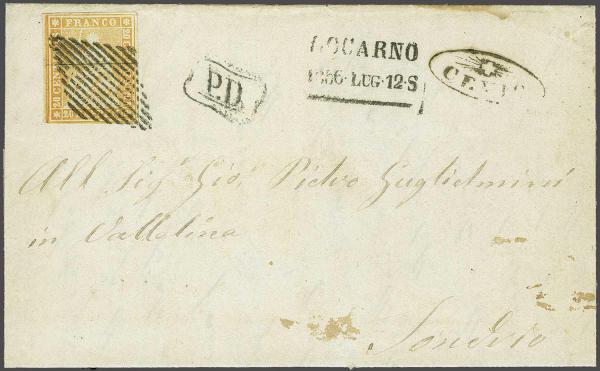 FRANCO
P.D.
LOCARNO
1856·LUG·12·S
All Sigr Gio. Pietro Guglielmini
in Valtelina
Sondrio